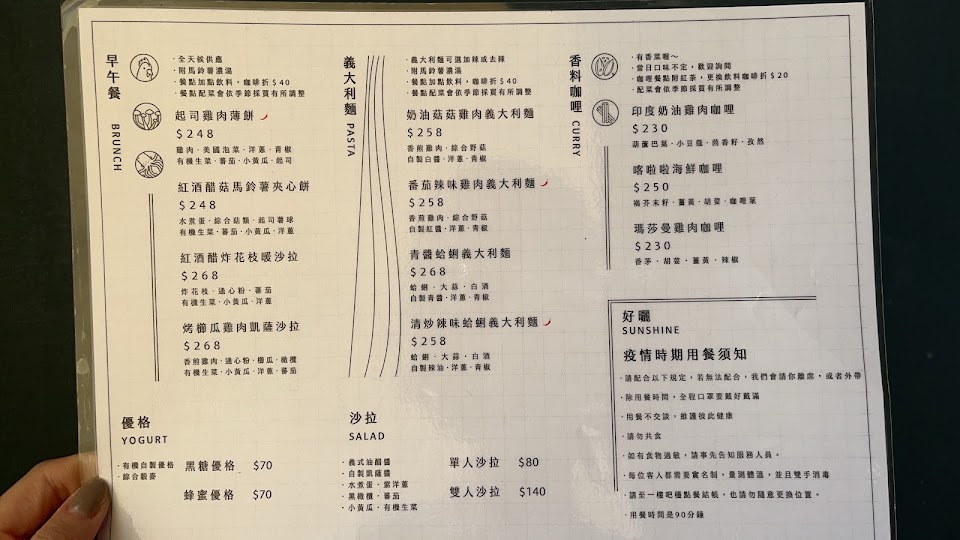 早午餐 BRUNCH
·全天候供應
·附馬鈴薯濃湯
·餐點加點飲料，咖啡折$40
·餐點配菜會依季節採買有所調整
起司雞肉薄餅
$248
雞肉·美國泡菜·洋蔥·青椒
有機生菜·蕃茄·小黃瓜·起司
紅酒醋菇馬鈴薯夾心餅
$248
水煮蛋·綜合菇類·起司薯球
有機生菜·蕃茄·小黃瓜·洋蔥
紅酒醋炸花枝暖沙拉
$268
炸花枝·通心粉·蕃茄
有機生菜·小黃瓜·洋蔥
烤櫛瓜雞肉凱薩沙拉
$268
香煎雞肉·通心粉·櫛瓜·橄欖
有機生菜·小黃瓜·洋蔥·蕃茄
義大利麵 PASTA
·義大利麵可選加辣或去辣
·附馬鈴薯濃湯
·餐點加點飲料，咖啡折$40
·餐點配菜會依季節採買有所調整
奶油菇菇雞肉義大利麵
$258
香煎雞肉·綜合野菇
自製白醬·洋蔥·青椒
番茄辣味雞肉義大利麵
$258
香煎雞肉·綜合野菇
自製紅醬·洋蔥·青椒
青醬蛤蜊義大利麵
$268
蛤蜊·大蒜·白酒
自製青醬·洋蔥·青椒
清炒辣味蛤蜊義大利麵
$258
蛤蜊·大蒜·白酒
自製辣油·洋蔥·青椒
香料咖哩 CURRY
·有香菜喔～
·當日口味不定，歡迎詢問
·咖哩餐點附紅茶，更換飲料咖啡折$20
·配菜會依季節採買有所調整
印度奶油雞肉咖哩
$230
葫蘆巴葉·小豆蔻·茴香籽·孜然
喀啦啦海鮮咖哩
$250
褐芥末籽·薑黃·胡荽·咖哩葉
瑪莎曼雞肉咖哩
$230
香茅·胡荽·薑黃·辣椒
好曬
SUNSHINE
疫情時期用餐須知
·請配合以下規定，若無法配合，我們會請你離席，或者外帶
·除用餐時間，全程口罩要戴好戴滿
·用餐不交談，維護彼此健康
·請勿共食
·如有食物過敏，請事先告知服務人員。
·每位客人都需要實名制，量測體溫，並且雙手消毒
·請至一樓吧檯點餐結帳，也請勿隨意更換位置。
·用餐時間是90分鐘
優格
YOGURT
·有機自製優格
·綜合穀麥
黑糖優格 $70
蜂蜜優格 $70
沙拉
SALAD
·義式油醋醬
·自製凱薩醬
·水煮蛋·紫洋蔥
·黑橄欖·蕃茄
·小黃瓜·有機生菜
單人沙拉 $80
雙人沙拉 $140